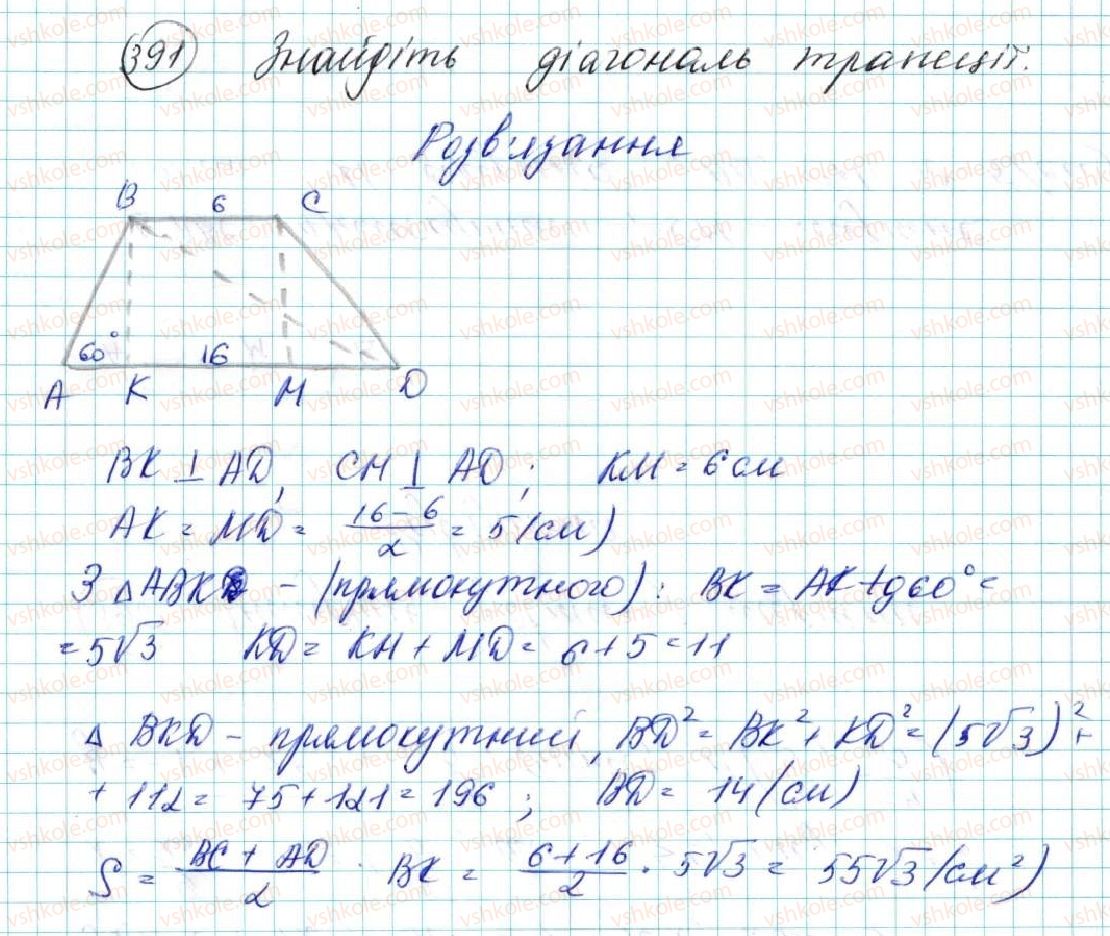 391 Знайдіть діагональ трапеції.
Розв'язання
B 6 C
60° 16
A K M D
BK ⊥ AD, CH ⊥ AD; KM = 6 см
AK = MD = (16-6)/2 = 5 (см)
З △ABK - (прямокутного): BK = AK tg60° =
= 5√3 KD = KH + MD = 6+5=11
△ BKD - прямокутний, BD² = BK² + KD² = (5√3)² +
+ 112 = 75+121=196; BD = 14 (см)
S = (BC + AD)/2 · BK = (6+16)/2 · 5√3 = 55√3 (см²)